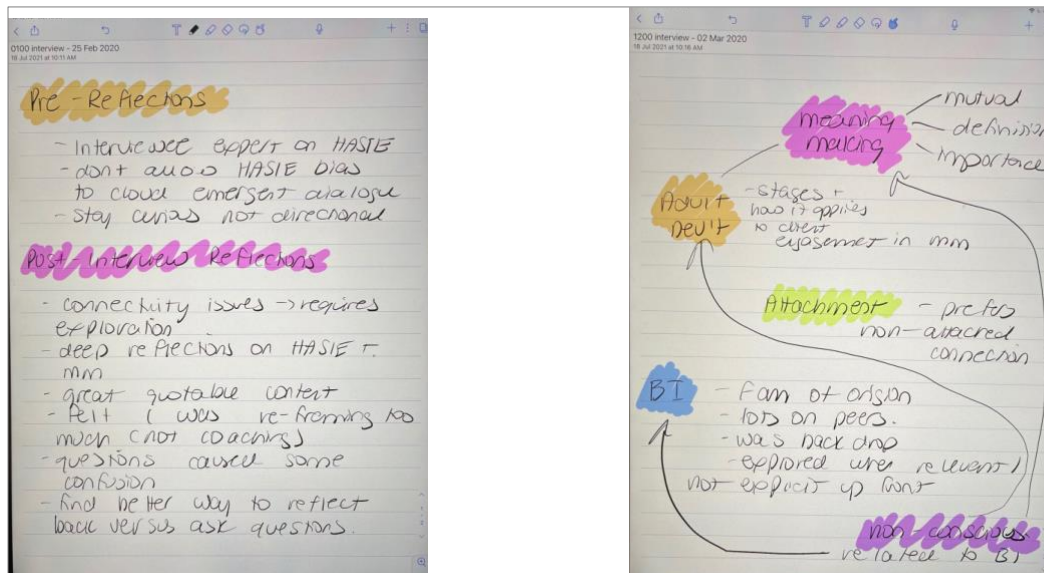 0100 interview - 25 Feb 2020
18 Jul 2021 at 10:11 AM
Pre-Reflections
- Interviewee expert on HASIE
- dont allow HASIE bias
to cloud emergent dialogue
- stay curious not directional
Post-Interview Reflections
- connectivity issues → requires
exploration
- deep reflections on HASIE +
mm
- great quotable content
- felt I was re-framing too
much (not coaching)
- questions caused some
confusion
- find better way to reflect
back versus ask questions.
1200 interview - 02 Mar 2020
18 Jul 2021 at 10:16 AM
meaning
making
- mutual
- definition
- importance
Adult
Dev't
- stages +
how it applies
to client
engagement in mm
Attachment - prefers
non-attached
connection
BI - Fam of origin
- lots on peers.
- was back drop
- explored when relevent /
not explicit up front
non-conscious
related to BI